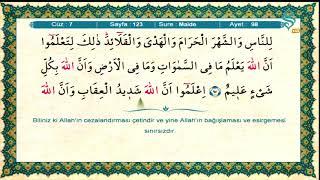 Cüz : 7 Sayfa : 123 Sure : Maide Ayet : 98
لِلنَّاسِ وَالشَّهْرَ الْحَرَامَ وَالْهَدْىَ وَالْقَلَٓائِدَۜ ذٰلِكَ لِتَعْلَمُٓوا
اَنَّ اللّٰهَ يَعْلَمُ مَا فِى السَّمٰوَاتِ وَمَا فِى الْاَرْضِ وَاَنَّ اللّٰهَ بِكُلِّ
شَىْءٍ عَل۪يمٌ اِعْلَمُٓوا اَنَّ اللّٰهَ شَد۪يدُ الْعِقَابِ وَاَنَّ اللّٰهَ
Biliniz ki Allah'ın cezalandırması çetindir ve yine Allah'ın bağışlaması ve esirgemesi
sınırsızdır.